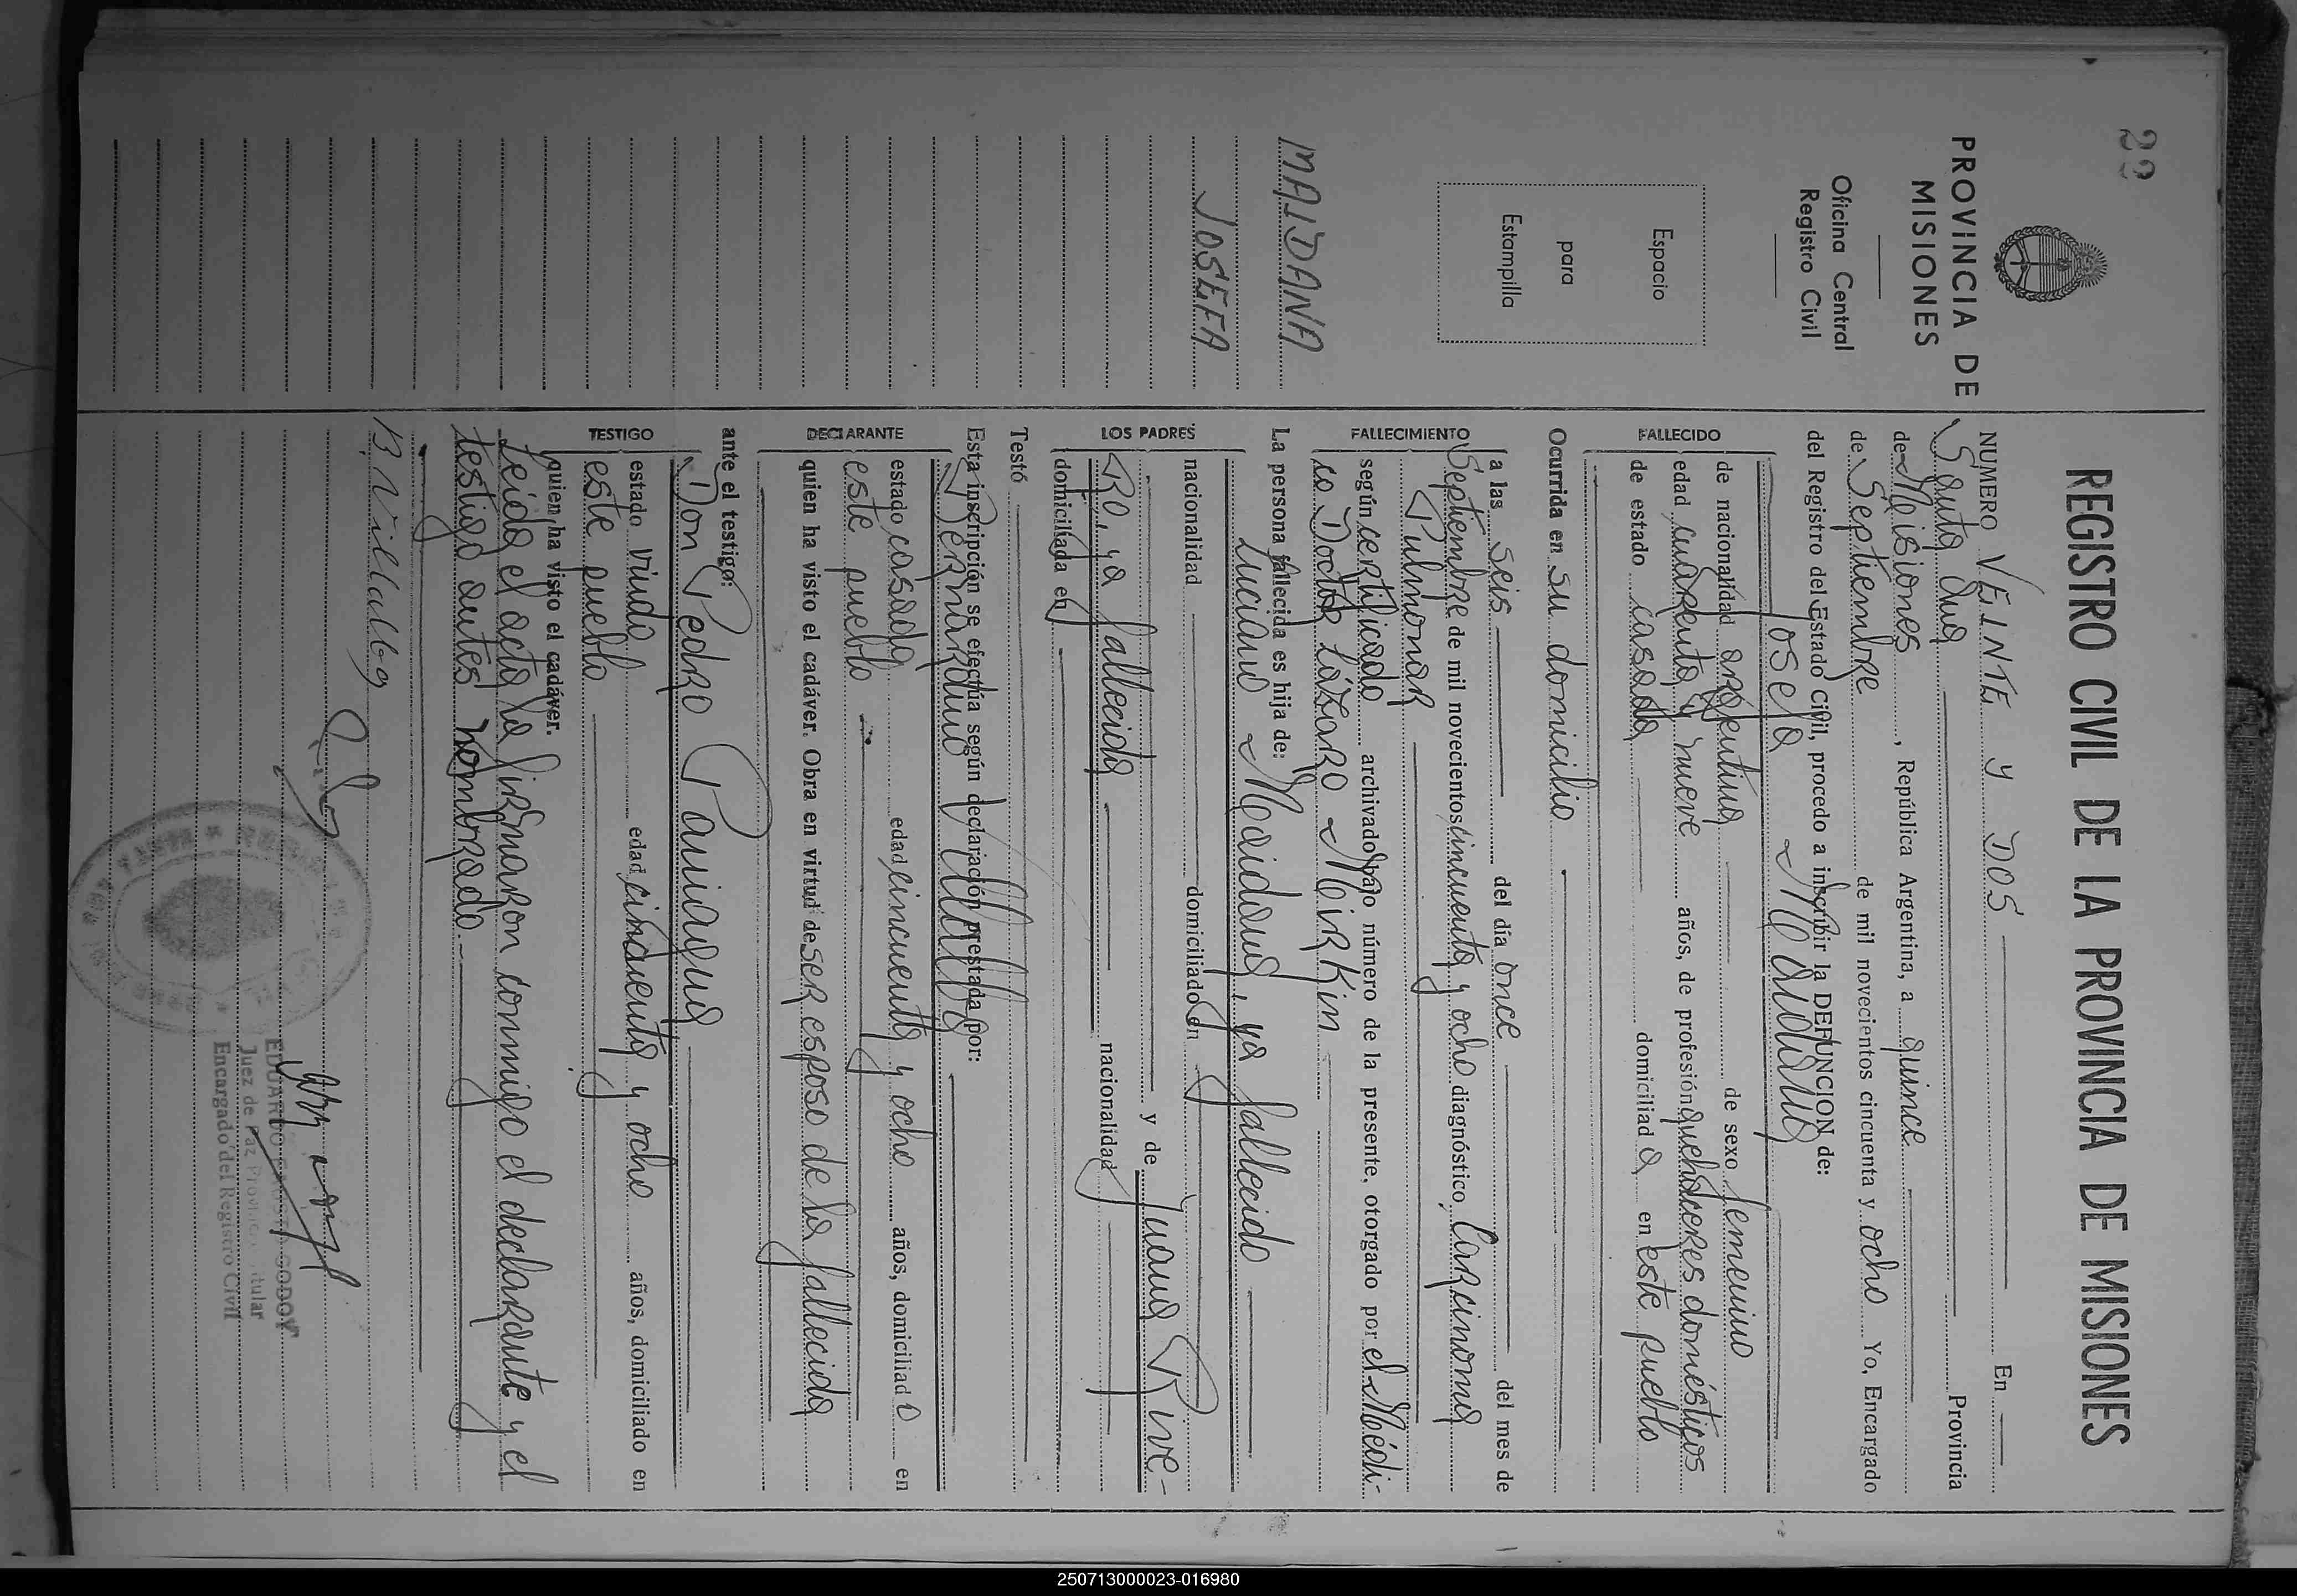 22
PROVINCIA DE
MISIONES
Oficina Central
Registro Civil
Espacio
para
Estampilla
MAIDANA
JOSEFA
REGISTRO CIVIL DE LA PROVINCIA DE MISIONES
NUMERO VEINTE y DOS En
Santa Ana Provincia
de Misiones, República Argentina, a quince
de Septiembre de mil novecientos cincuenta y ocho Yo, Encargado
del Registro del Estado Civil, procedo a inscribir la DEFUNCION de:
Josefa Maidana
FALLECIDO
de nacionalidad argentina de sexo femenino
edad cuarenta y nueve años, de profesión quehaceres domésticos
de estado casada domiciliad a en este pueblo
Ocurrida en su domicilio
FALLECIMIENTO
a las seis del día once del mes de
Septiembre de mil novecientos cincuenta y ocho diagnóstico, Carcinoma
Pulmonar
según certificado archivado bajo número de la presente, otorgado por el Médi-
co Doctor Lázaro Meirkin
La persona fallecida es hija de:
LOS PADRES
Luciano Maidana, ya fallecido
nacionalidad domiciliado en
y de Juana Rive-
ro, ya fallecida nacionalidad
domiciliada en
Testó
Esta inscripción se efectúa según declaración prestada por:
DECLARANTE
Bernardino Villalba
estado casado edad cincuenta y ocho años, domiciliad o en
este pueblo
quien ha visto el cadáver. Obra en virtud de ser esposo de la fallecida
ante el testigo:
TESTIGO
Don Pedro Paniagua
estado viudo edad cincuenta y ocho años, domiciliado en
este pueblo
quien ha visto el cadáver.
Leida el acta la firmaron conmigo el declarante y el
testigo antes nombrado
B Villalba
EDUARDO GODOY
Juez de Paz
Encargado del Registro Civil
250713000023-016980